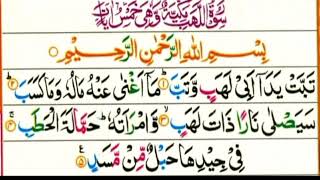 سُوْرَةُ اللَّهَبِ مَكِّيَّةٌ وَّهِيَ خَمْسُ اٰيَاتٍ
بِسْمِ اللهِ الرَّحْمٰنِ الرَّحِيْمِ
تَبَّتْ يَدَاۤ اَبِيْ لَهَبٍ وَّتَبَّ ۝۱ مَاۤ اَغْنٰى عَنْهُ مَالُهٗ وَمَا كَسَبَ ۝۲
سَيَصْلٰى نَارًا ذَاتَ لَهَبٍ ۝۳ وَّامْرَاَتُهٗ ؕ حَمَّالَةَ الْحَطَبِ ۝۴
فِيْ جِيْدِهَا حَبْلٌ مِّنْ مَّسَدٍ ۝۵